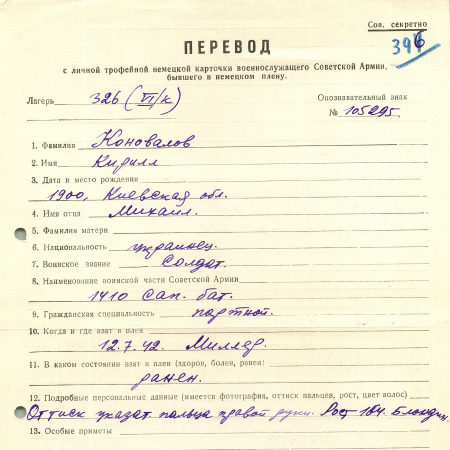 Сов. секретно
ПЕРЕВОД
с личной трофейной немецкой карточки военнослужащего Советской Армии,
бывшего в немецком плену.
Лагерь 326 (VI/к)
Опознавательный знак
№ 105295.
1. Фамилия Коновалов
2. Имя Кирилл
3. Дата и место рождения
1900, Киевская обл.
4. Имя отца Михаил.
5. Фамилия матери
6. Национальность украинец.
7. Воинское звание Солдат.
8. Наименование воинской части Советской Армии
1410 Сап. бат.
9. Гражданская специальность портной.
10. Когда и где взят в плен
12.7.42. Миллер.
11. В каком состоянии взят в плен (здоров, болен, ранен)
ранен.
12. Подробные персональные данные (имеется фотография, оттиск пальцев, рост, цвет волос)
Оттиск указат. пальца правой руки. Рост 164. Блондин.
13. Особые приметы